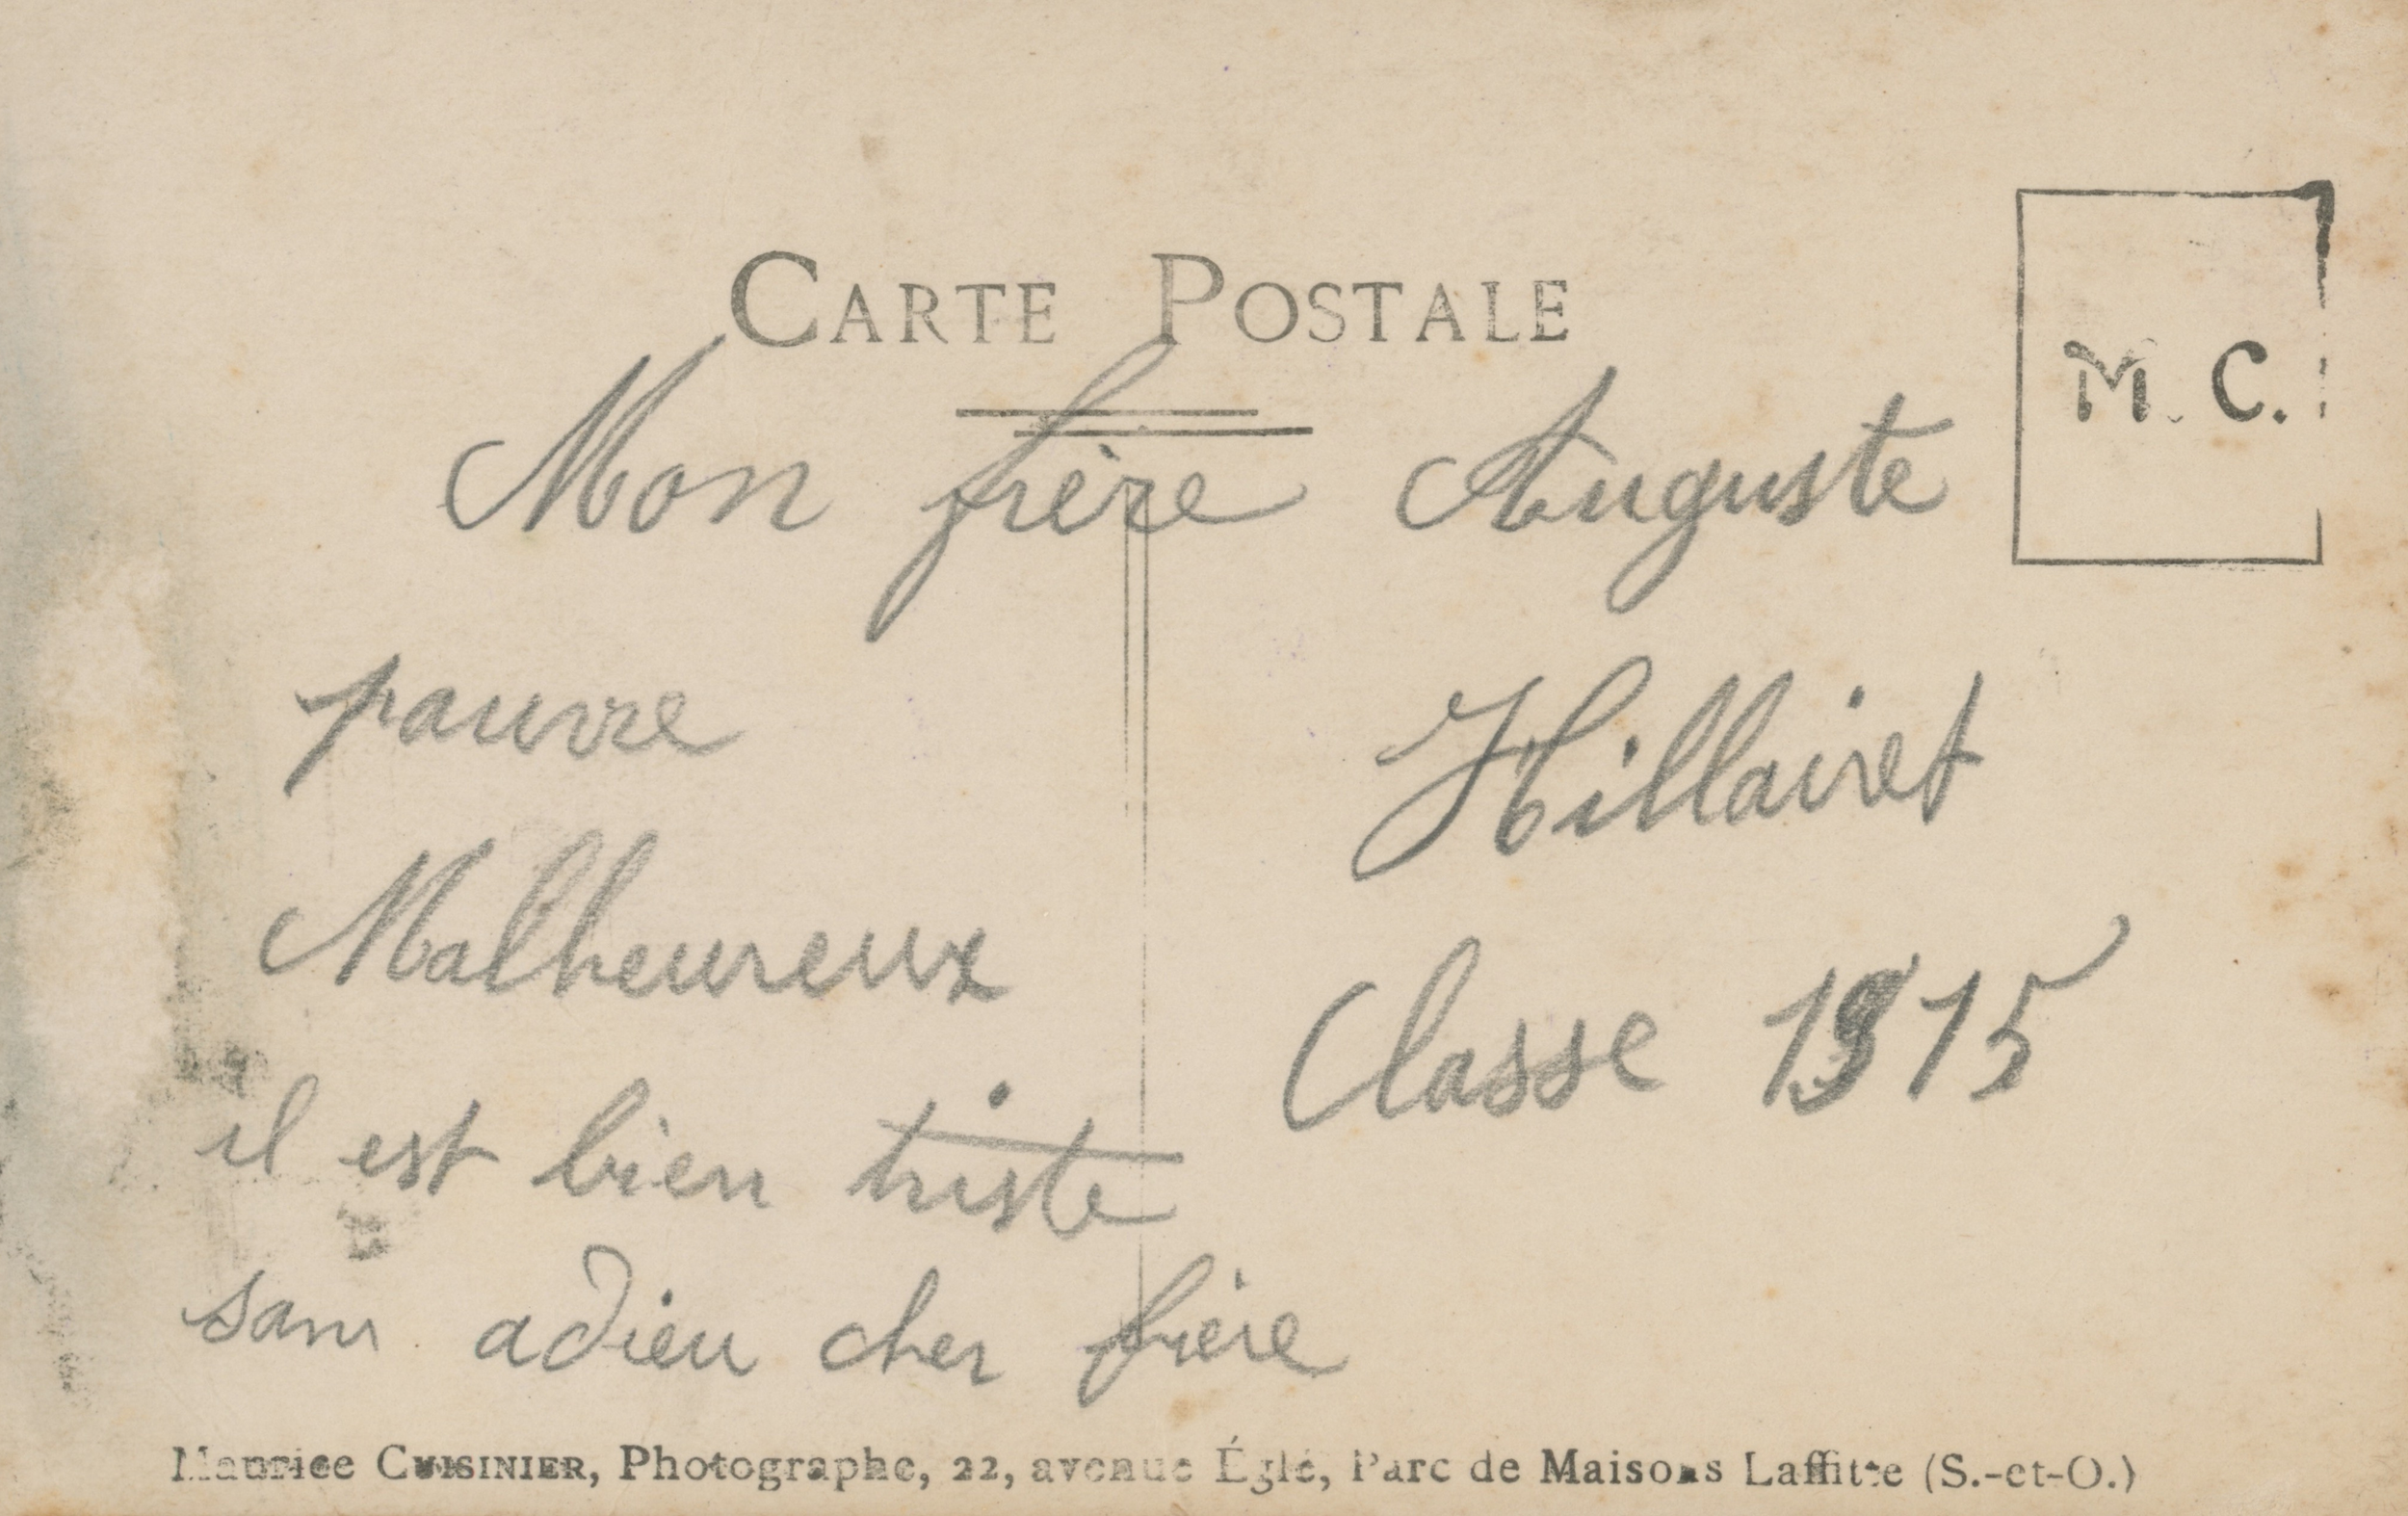 CARTE POSTALE
M. C.
Mon frère Auguste
pauvre
Hillairet
Malheureux
Classe 1915
il est bien triste
sans adieu cher frère
Maurice CUISINIER, Photographe, 22, avenue Églé, Parc de Maisons Laffitte (S.-et-O.)